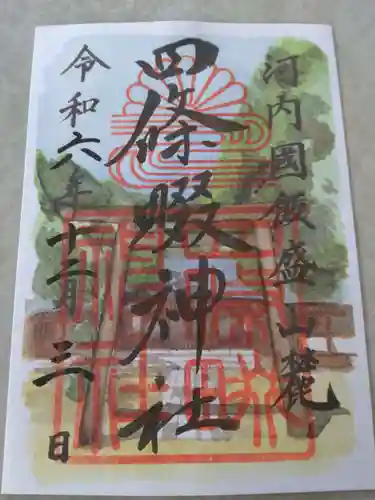 河内國飯盛山麓
四條畷神社
令和六年十二月三日